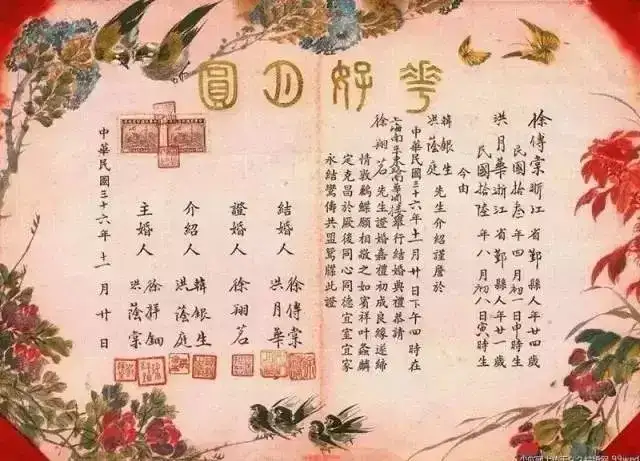 花好月圓
徐傳棠浙江省鄞縣人年廿四歲
民國拾叁年四月初一日申時生
洪月華浙江省鄞縣人年廿一歲
民國拾陸年八月初八日寅時生
今由
韓銀生
洪蔭庭
先生介紹謹詹於
中華民國三十六年十一月廿日下午四時在
上海南京東路南華酒樓舉行結婚典禮恭請
徐翔茗先生證婚嘉禮初成良緣遂締
情敦鶼鰈願相敬之如賓祥叶螽麟
定克昌於厥後同心同德宜室宜家
永結鸞儔共盟鴛牒此證
結婚人
徐傳棠
洪月華
證婚人
徐翔茗
介紹人
韓銀生
洪蔭庭
主婚人
徐祥鈿
洪蔭棠
中華民國三十六年十一月廿日